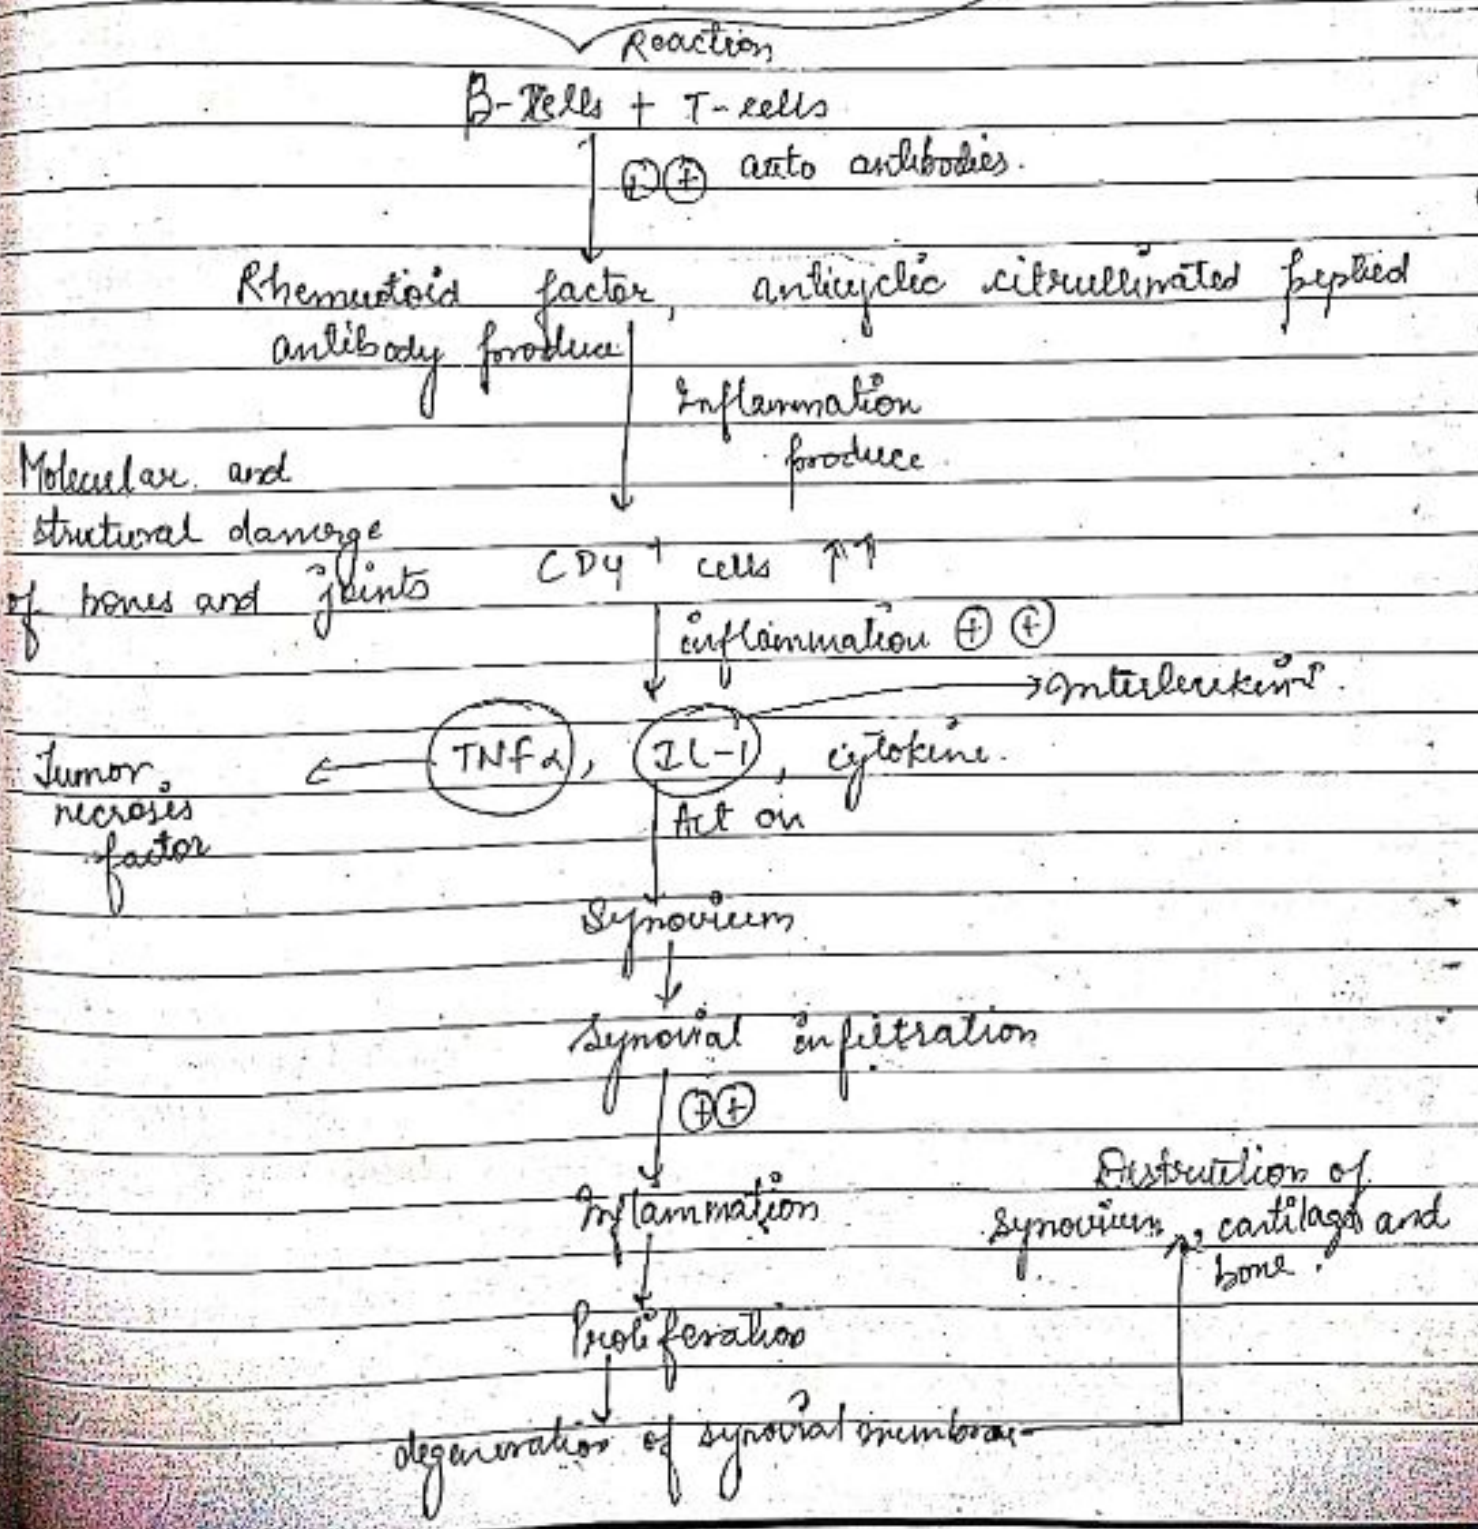 Reaction
B-cells + T-cells
⊕⊕ auto antibodies.
Rhemuotoid factor, anticyclic citrullinated peptied
antibody produce
Inflammation
produce
Molecular and
structural damage
of bones and joints
CD4+ cells ↑↑
inflammation ⊕ ⊕
→ Interleukin
Tumor ← TNFα, IL-1, cytokine.
necrosis
factor
Act on
Synovium
Synovial infiltration
⊕⊕
Inflammation
Distruction of
synovium, cartilage and
bone.
Proliferation
degeneration of synovial membrane